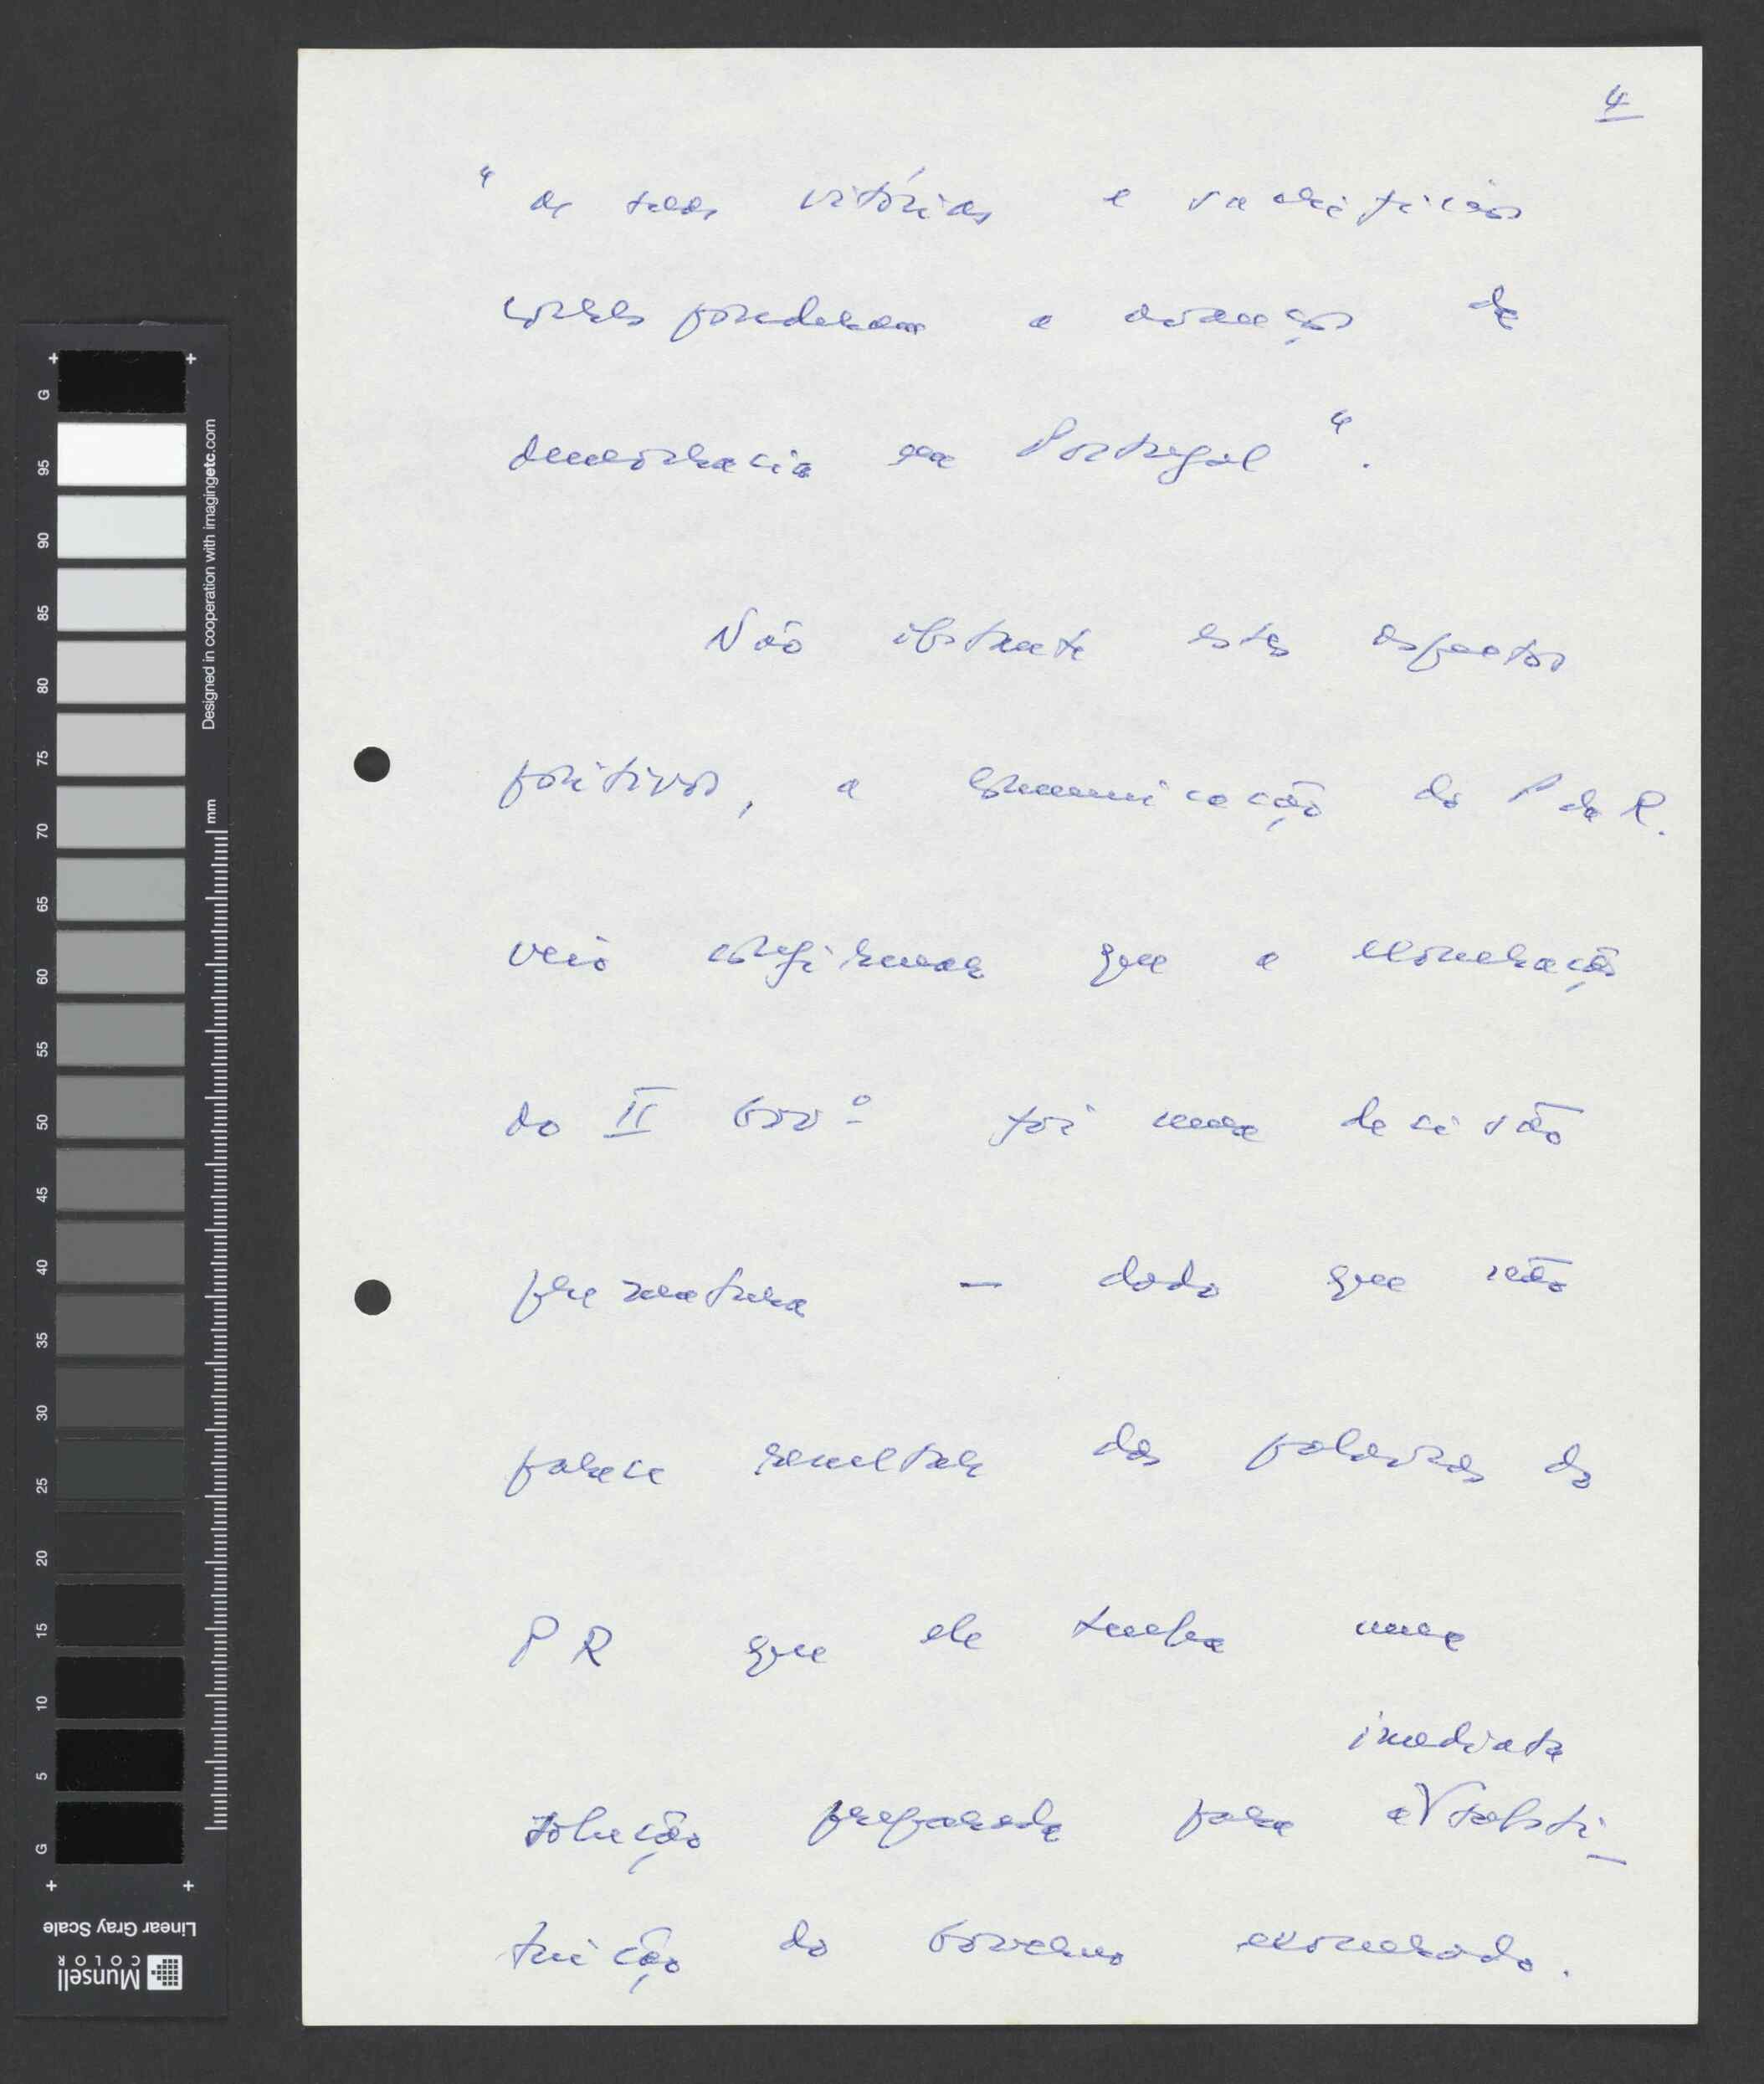 4
"as suas vitórias e sacrifícios
corresponderam a avanços da
democracia em Portugal".
Não obstante estes aspectos
positivos, a comunicação do P da R.
veio confirmar que a exoneração
do II Govº foi uma decisão
prematura — dado que não
parece resultar das palavras do
PR que ele tenha uma
imediata
solução preparada para a substi-
tuição do Governo exonerado.
G
95
90
85
80
75
70
65
60
55
50
45
40
35
30
25
20
15
10
5
G
mm
Designed in cooperation with imagingetc.com
Linear Gray Scale
Munsell
COLOR